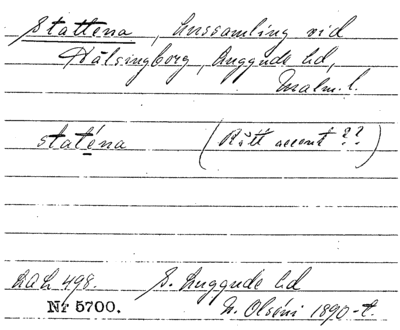 Stattena, hussamling vid
Hälsingborg, Luggude hd,
Malm. l.
staténa (Rätt accent ??)
DAL 498. S. Luggude hd
Nr 5700. N. Olséni 1890-t.